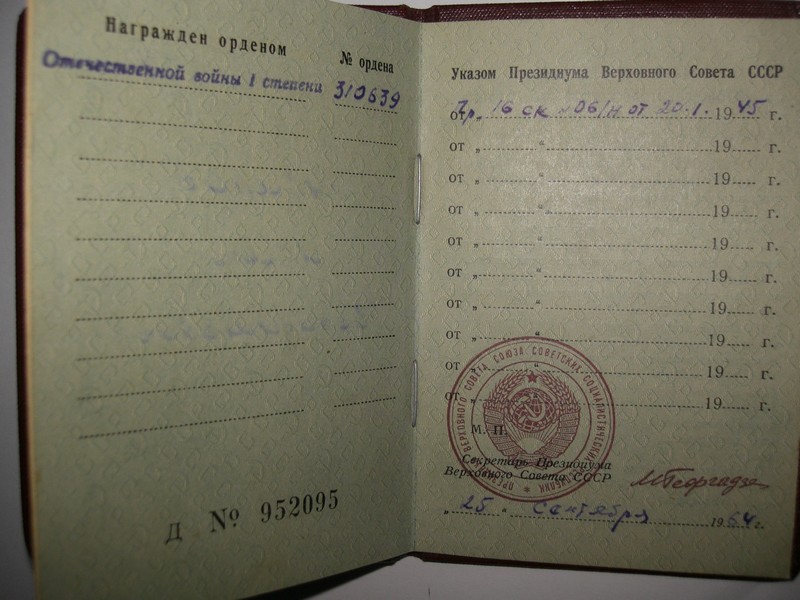 Награжден орденом
№ ордена
Отечественной войны I степени 310639
Д № 952095
Указом Президиума Верховного Совета СССР
от Пр. 16 ск № 06/н от 20.1. 1945 г.
от „ “ 19 г.
от „ “ 19 г.
от „ “ 19 г.
от „ “ 19 г.
от „ “ 19 г.
от „ “ 19 г.
от „ “ 19 г.
от „ “ 19 г.
от „ “ 19 г.
М. П.
Секретарь Президиума
Верховного Совета СССР
МГеоргадзе
„25“ сентября 1964 г.
ВЕРХОВНОГО СОВЕТА СОЮЗА СОВЕТСКИХ СОЦИАЛИСТИЧЕСКИХ